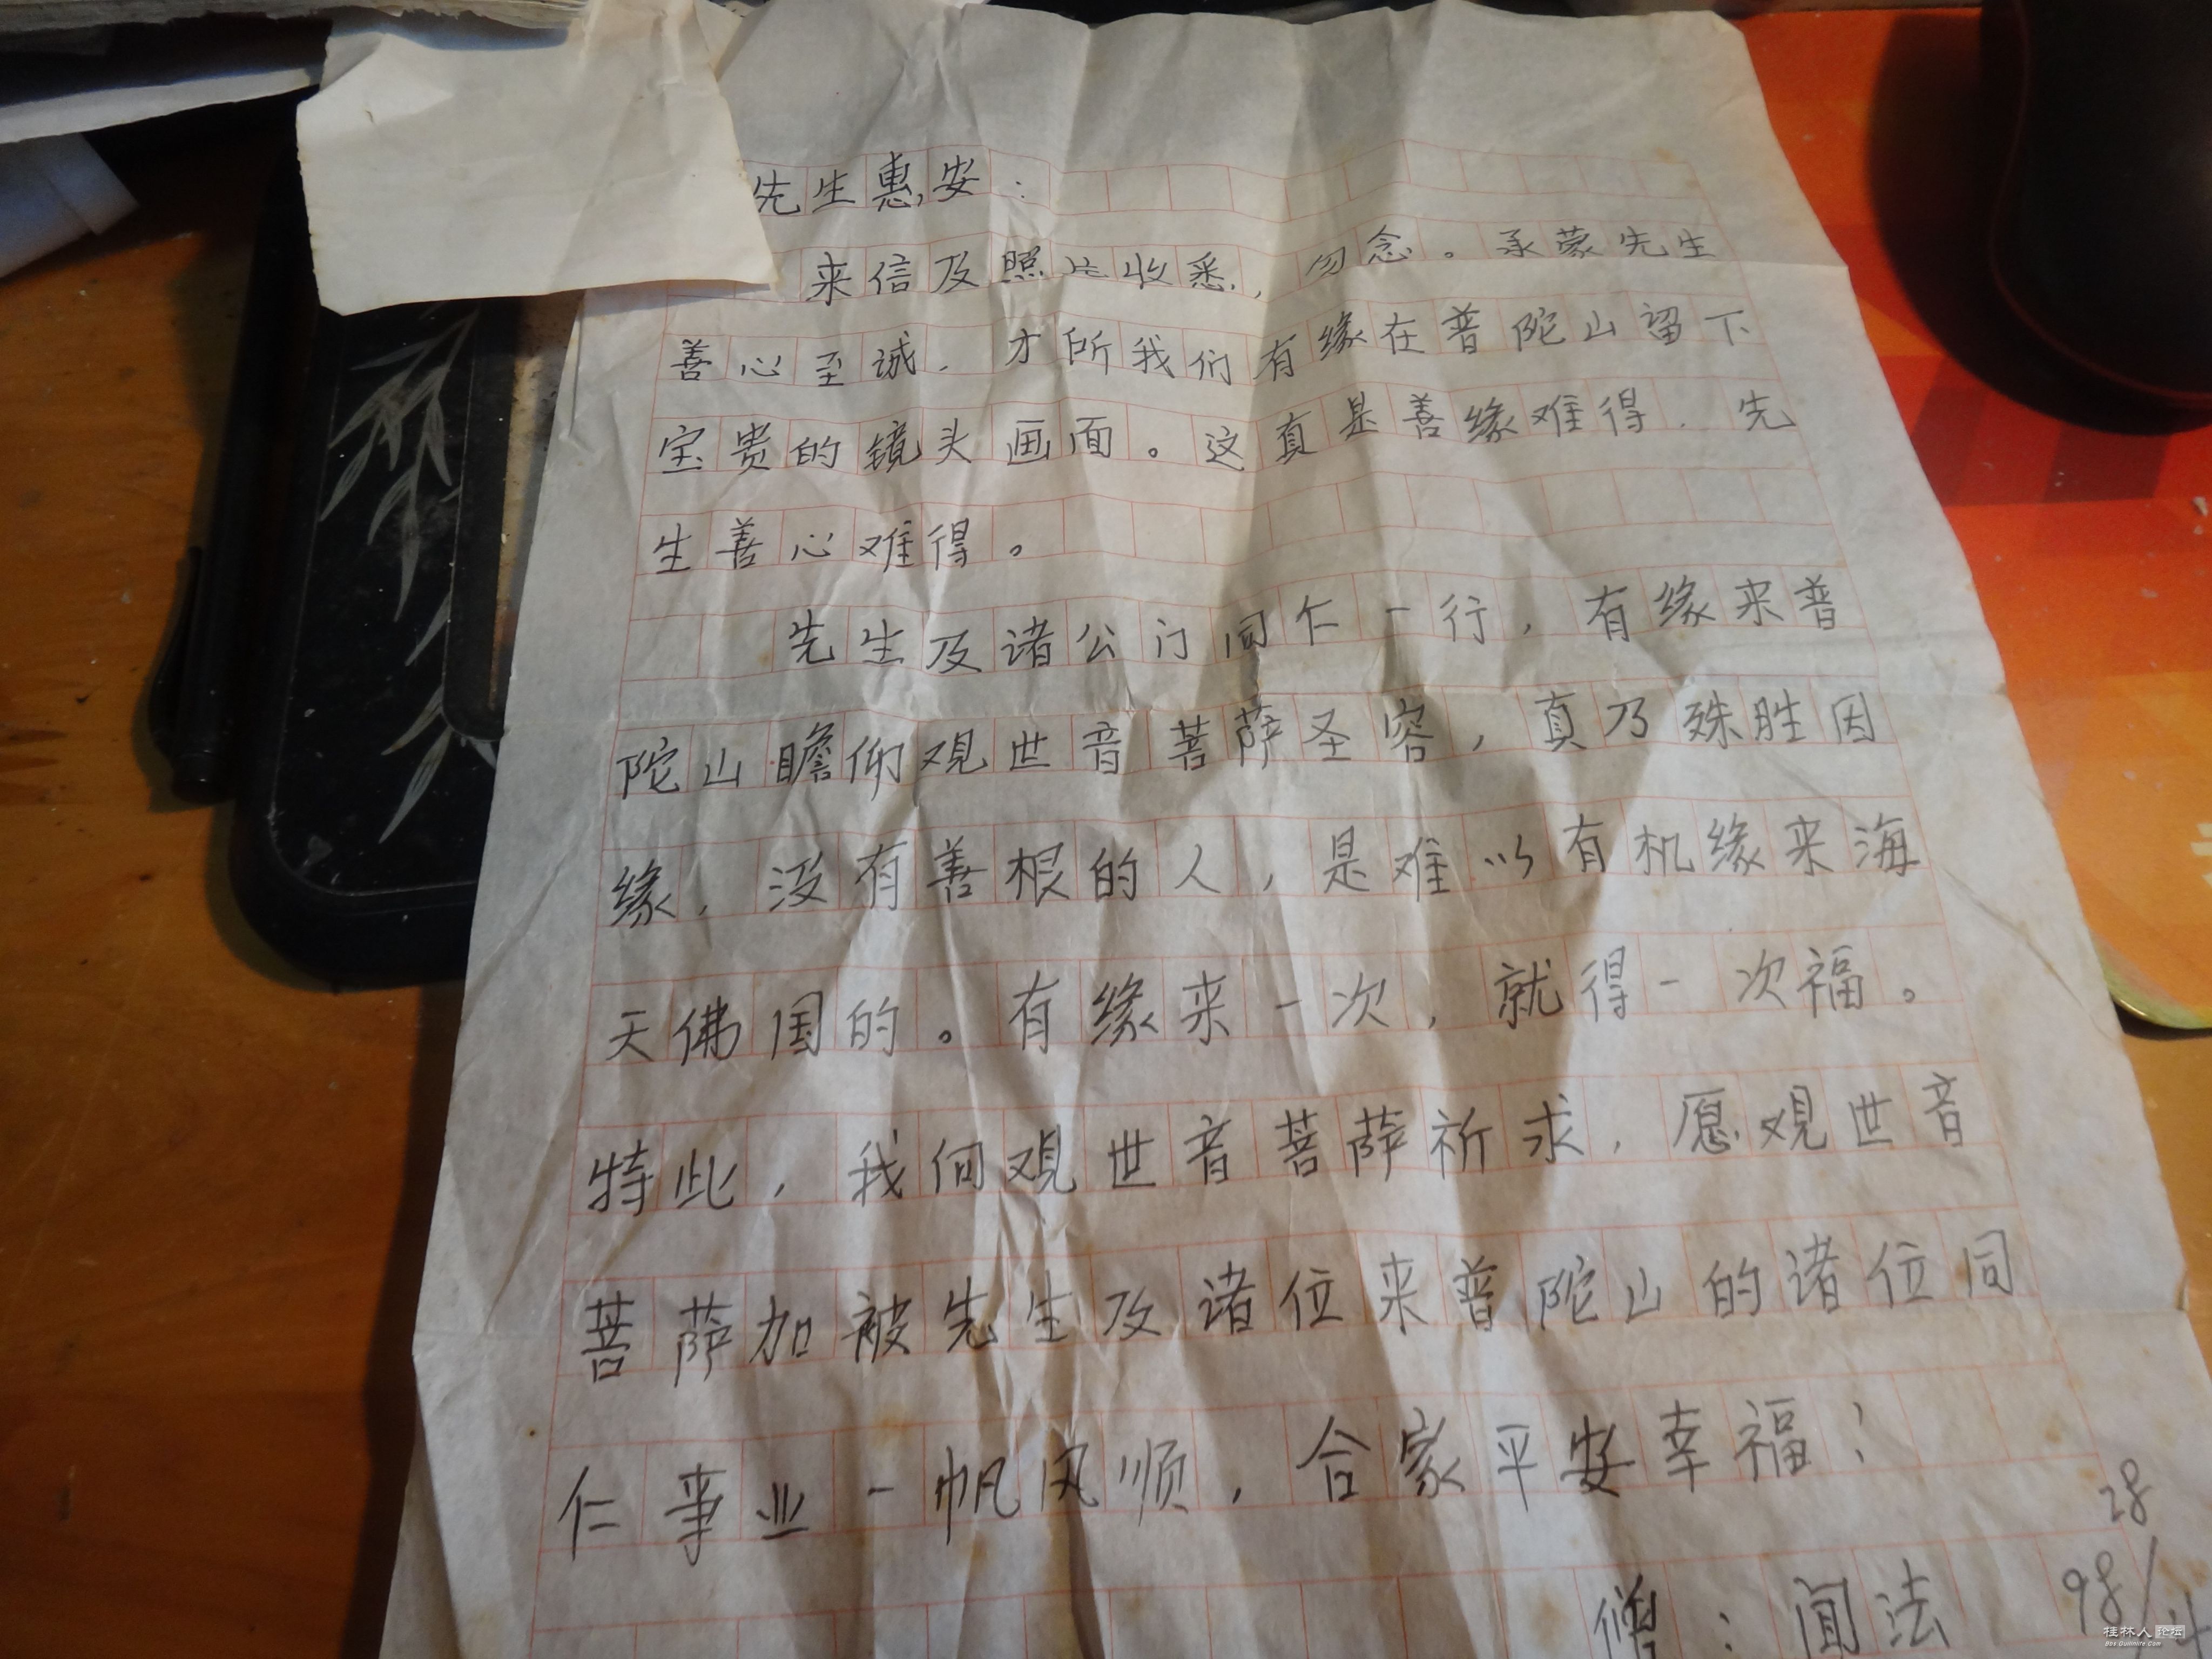 先生惠安：
来信及照片收悉，勿念。承蒙先生
善心至诚，才所我们有缘在普陀山留下
宝贵的镜头画面。这真是善缘难得，先
生善心难得。
先生及诸公门同仁一行，有缘来普
陀山瞻仰观世音菩萨圣容，真乃殊胜因
缘，没有善根的人，是难以有机缘来海
天佛国的。有缘来一次，就得一次福。
特此，我向观世音菩萨祈求，愿观世音
菩萨加被先生及诸位来普陀山的诸位同
仁事业一帆风顺，合家平安幸福！
28
僧：闻法 98/
桂林人论坛
BBS.Guilinlife.Com